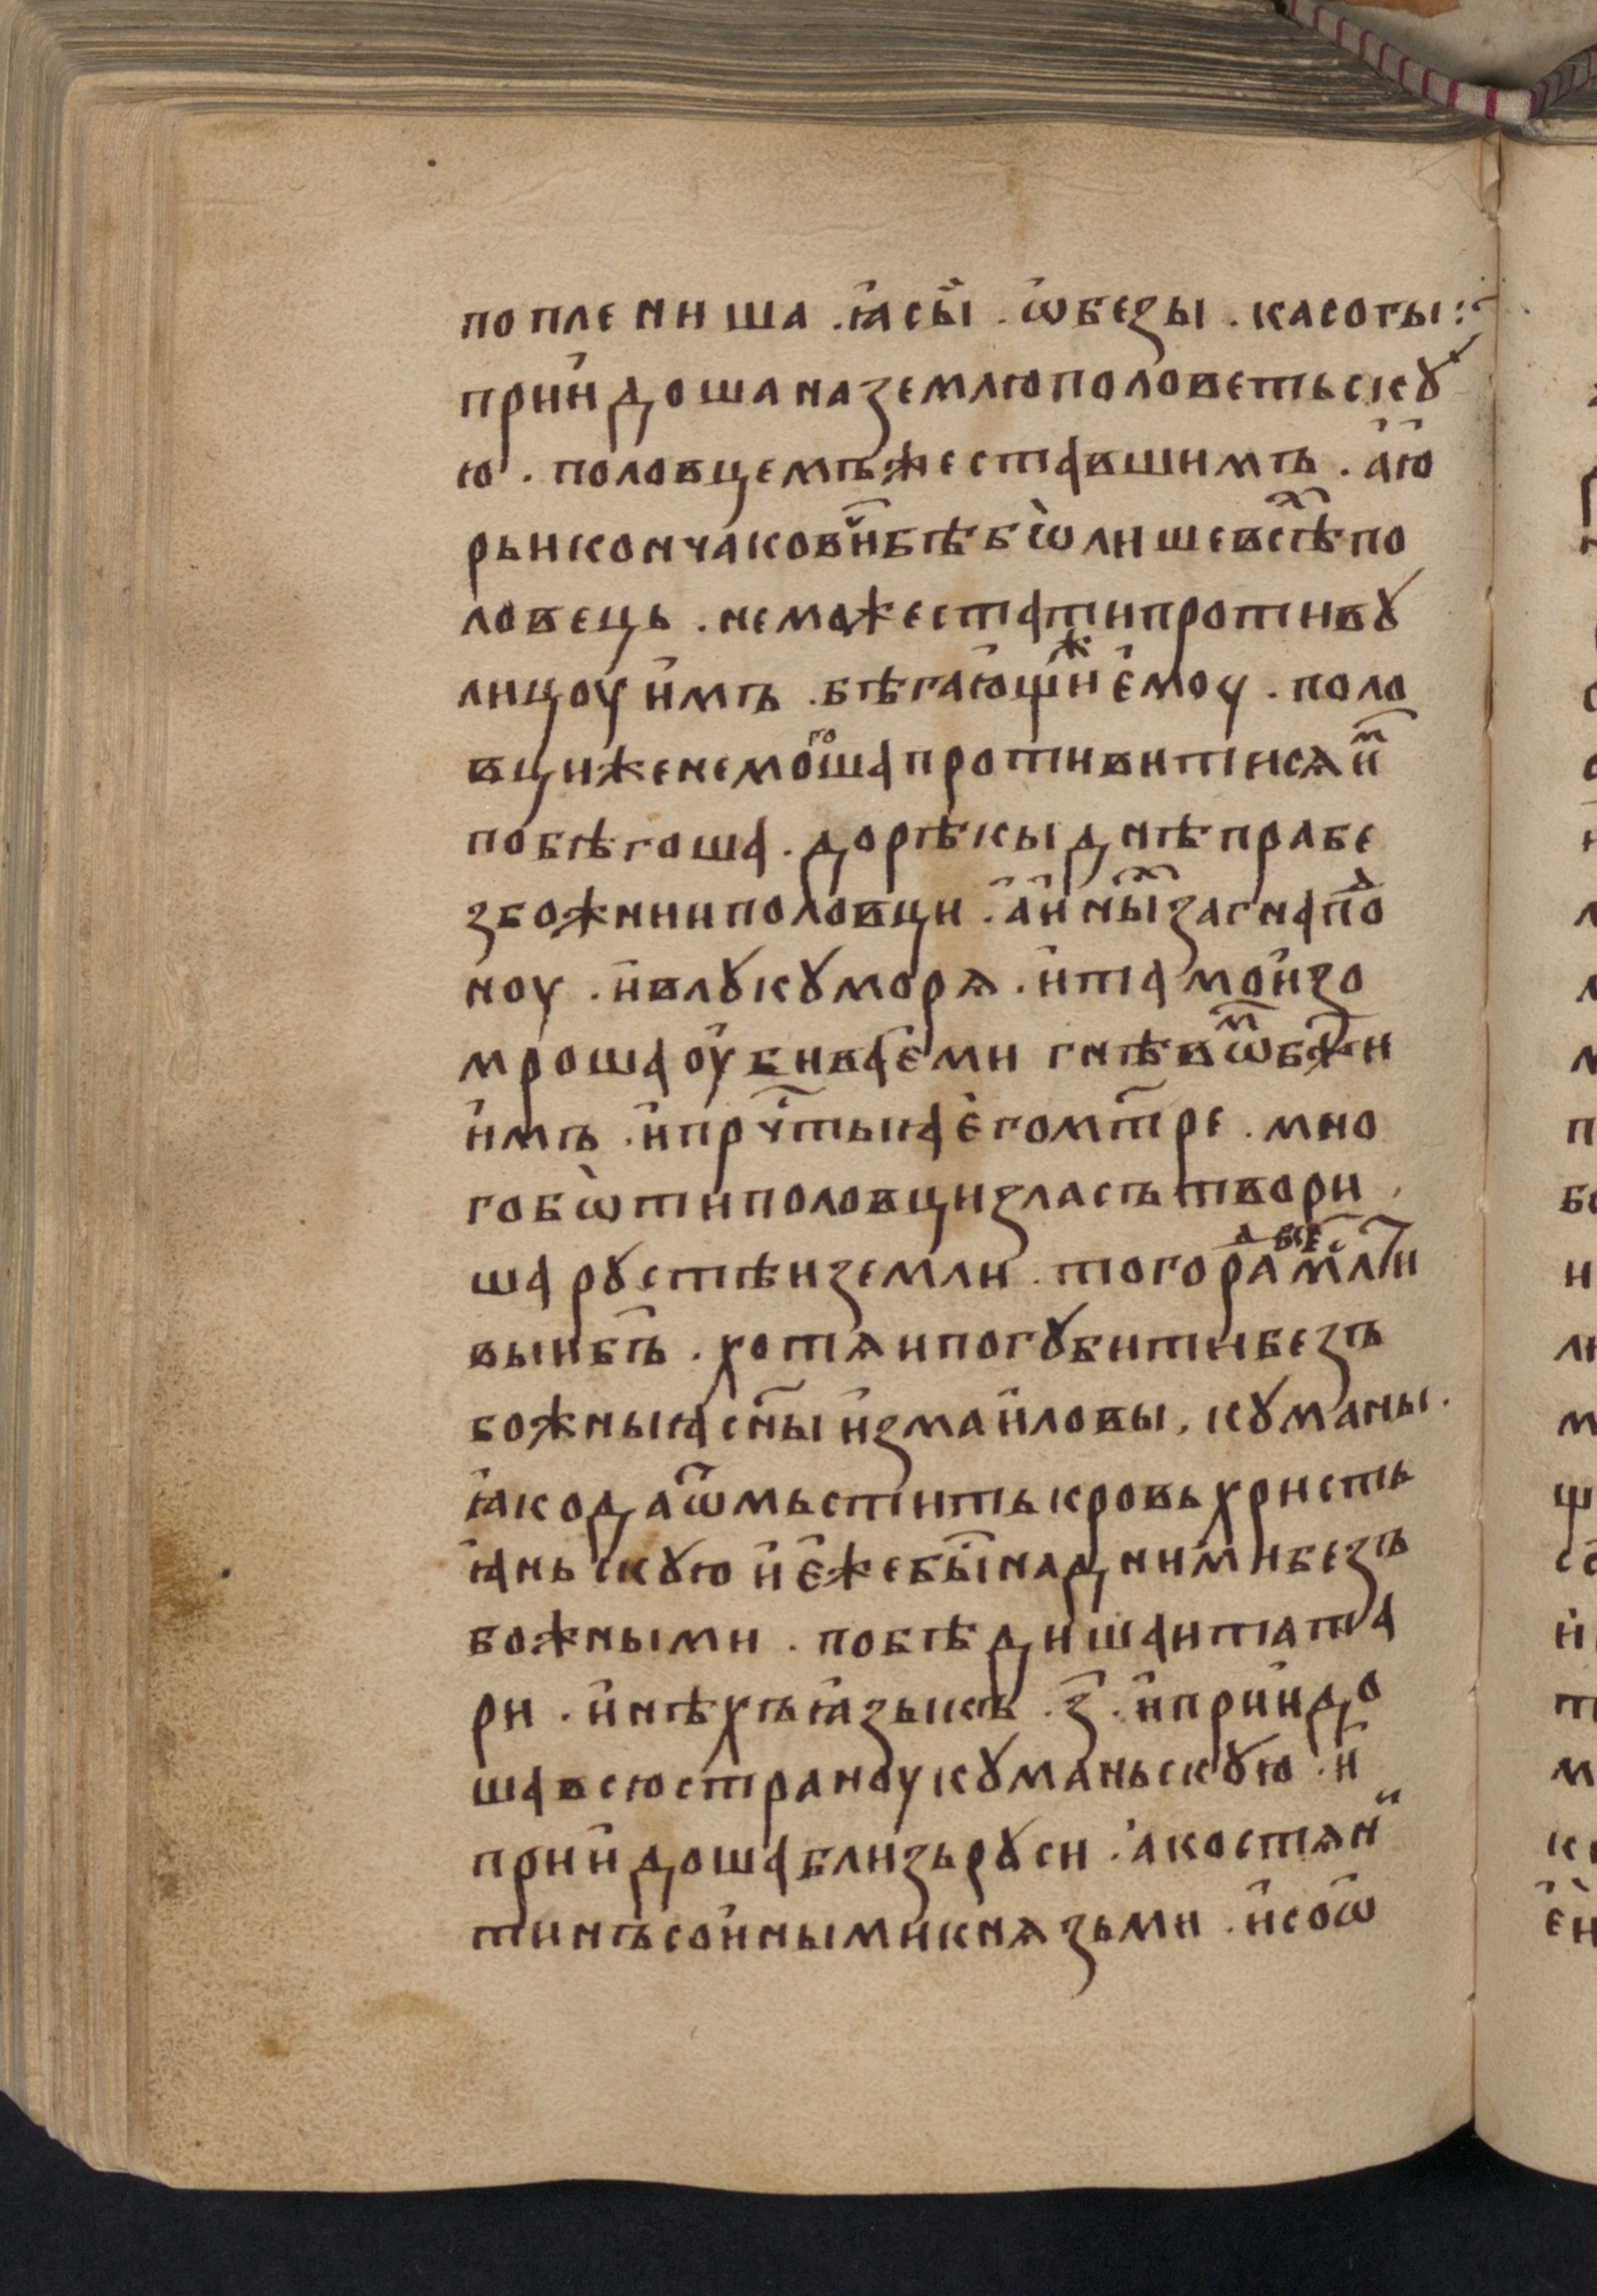 поплениша . ꙗсы . ѡбезы . касогы :~
прїидоша на землю половетьскꙋ
ю . половцемъ же ставшимъ . а ю
рьи кончакови͠ бѣ бѡлише всѣ͠ по
ловець . не може стати противꙋ
лицоу имъ . бѣгающиⷤ емоу . поло
вци же не могоша противитисѧ иⷨ
побѣгоша . до рѣкы днѣпра бе
збожнии половци . а ины͠ загна поⷣ
ноу . и в лꙋкꙋ морѧ . и тамо изо
мроша оубиваеми гнѣвоⷨ бж͠и
имъ . и прч͠тыꙗ его мт͠ре . много
го бѡ ти половци зла сътвори
ша рꙋстѣи земли . того раⷣ всемл͠ти
выи бг͠ъ . хотѧи погꙋбити безъ
божныꙗ сн͠ы измаиловы , кꙋманы .
ꙗко да ѿмьстить кровь христь
ꙗньскꙋю и еже бы͠ над ними безъ
божными . побѣдиша и тата
ри . и инѣхъ ꙗзыкъ . з͠ . и прїидо
ша всю страноу кꙋманьскꙋю . и
прїидоша близь рꙋси . а костѧн
тинъ со иными кнѧзьми . и со ѿ